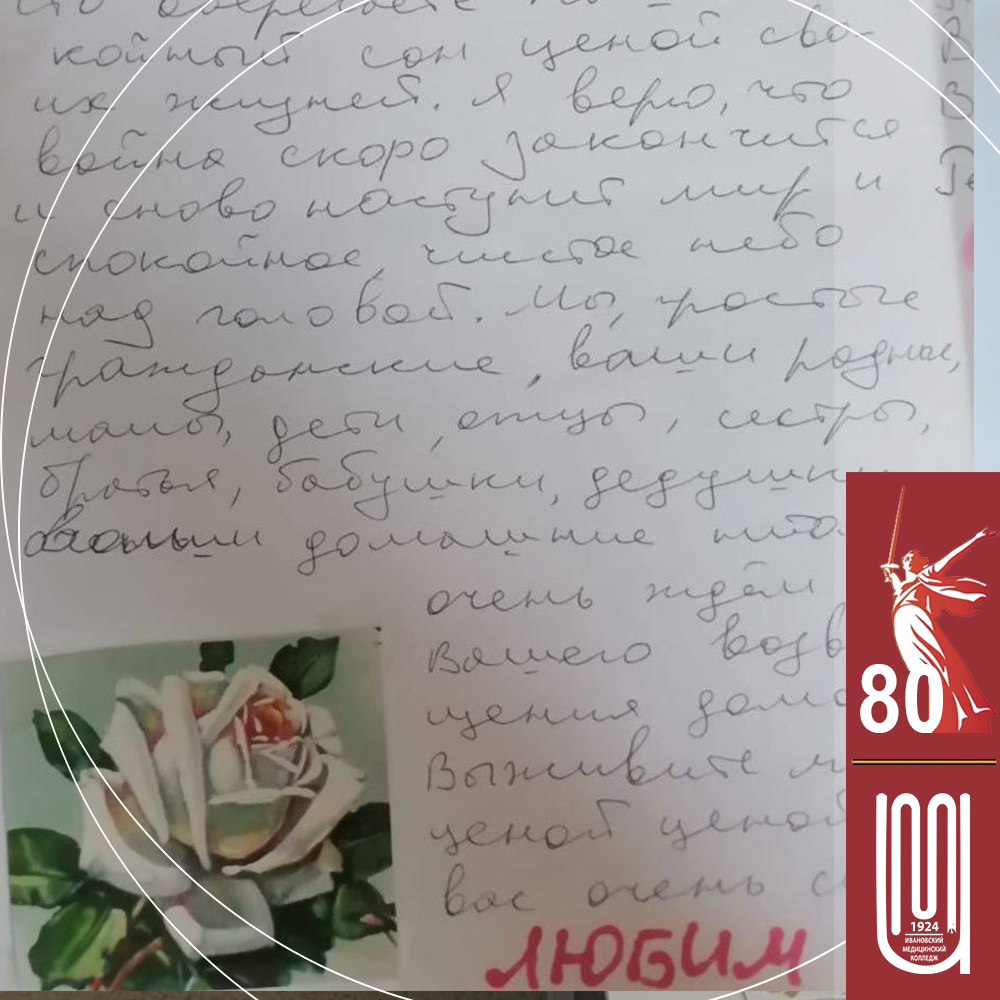 что оберегаете
койный сон ценой сво-
их жизней. Я верю, что
война скоро закончится
и снова наступит мир и
спокойное, чистое небо
над головой. Мы, простые
гражданские, ваши родные,
мамы, дети, отцы, сестры,
братья, бабушки, дедушки
домашние
очень ждём
вашего возв
щения дом
Выживите
ценой ценой
вас очень
ЛЮБИМ
80
1924
ИВАНОВСКИЙ
МЕДИЦИНСКИЙ
КОЛЛЕДЖ